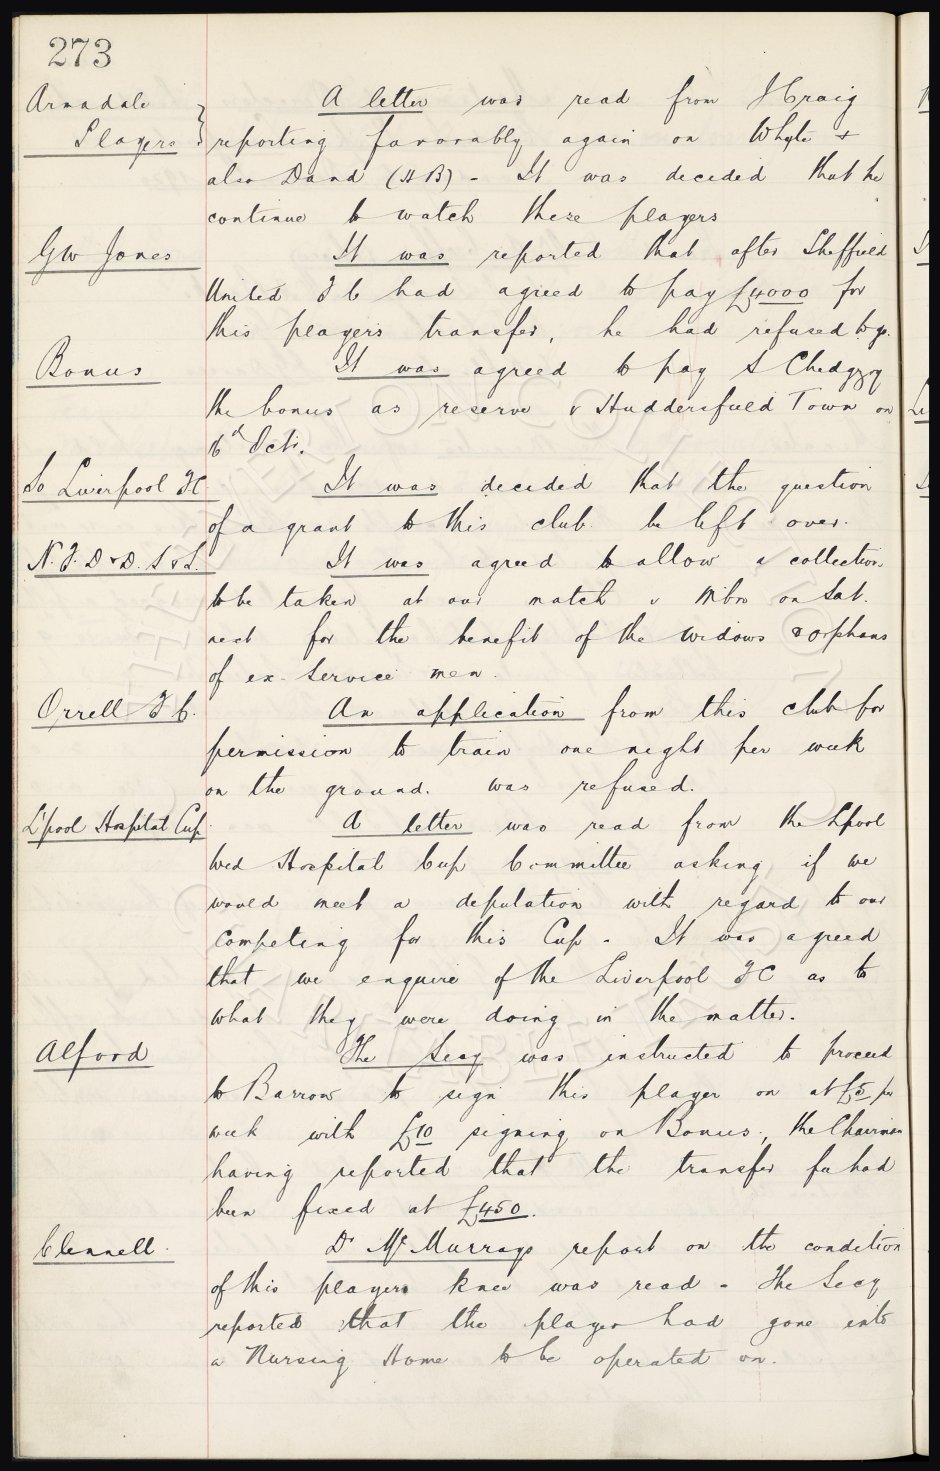 273
Armadale
Players
A letter was read from J Craig
reporting favorably again on Whyte +
also Dand (HB) - It was decided that he
continue to watch these players
GW Jones
It was reported that after Sheffield
United F C had agreed to pay £4000 for
this players transfer, he had refused to go.
Bonus
It was agreed to pay S Chedgzoy
the bonus as reserve v Huddersfield Town on
16th Octr.
So Liverpool FC
It was decided that the question
of a grant to this club be left over.
N.F.D & D. S & S.
It was agreed to allow a collection
to be taken at our match v Mbro on Sat.
next for the benefit of the widows & orphans
of ex-Service men.
Orrell F C.
An application from this club for
permission to train one night per week
on the ground. was refused.
L'pool Hospital Cup
A letter was read from the Lpool
Wed Hospital Cup Committee asking if we
would meet a deputation with regard to our
Competing for this Cup - It was agreed
that we enquire of the Liverpool FC as to
what they were doing in the matter.
Alford
The Secy was instructed to proceed
to Barrow to sign this player on at £5 per
week with £10 signing on Bonus, the Chairman
having reported that the transfer fee had
been fixed at £450.
Clennell
Dr McMurrays report on the condition
of this players knee was read - The Secy
reported that the player had gone into
a Nursing Home to be operated on.